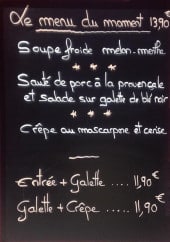 Le menu du moment 13,90€
Soupe froide melon-menthe
* * *
Sauté de porc à la provençale
et salade sur galette de blé noir
* * *
Crêpe au mascarpone et cerise
Entrée + Galette ..... 11,90€
Galette + Crêpe ..... 11,90€